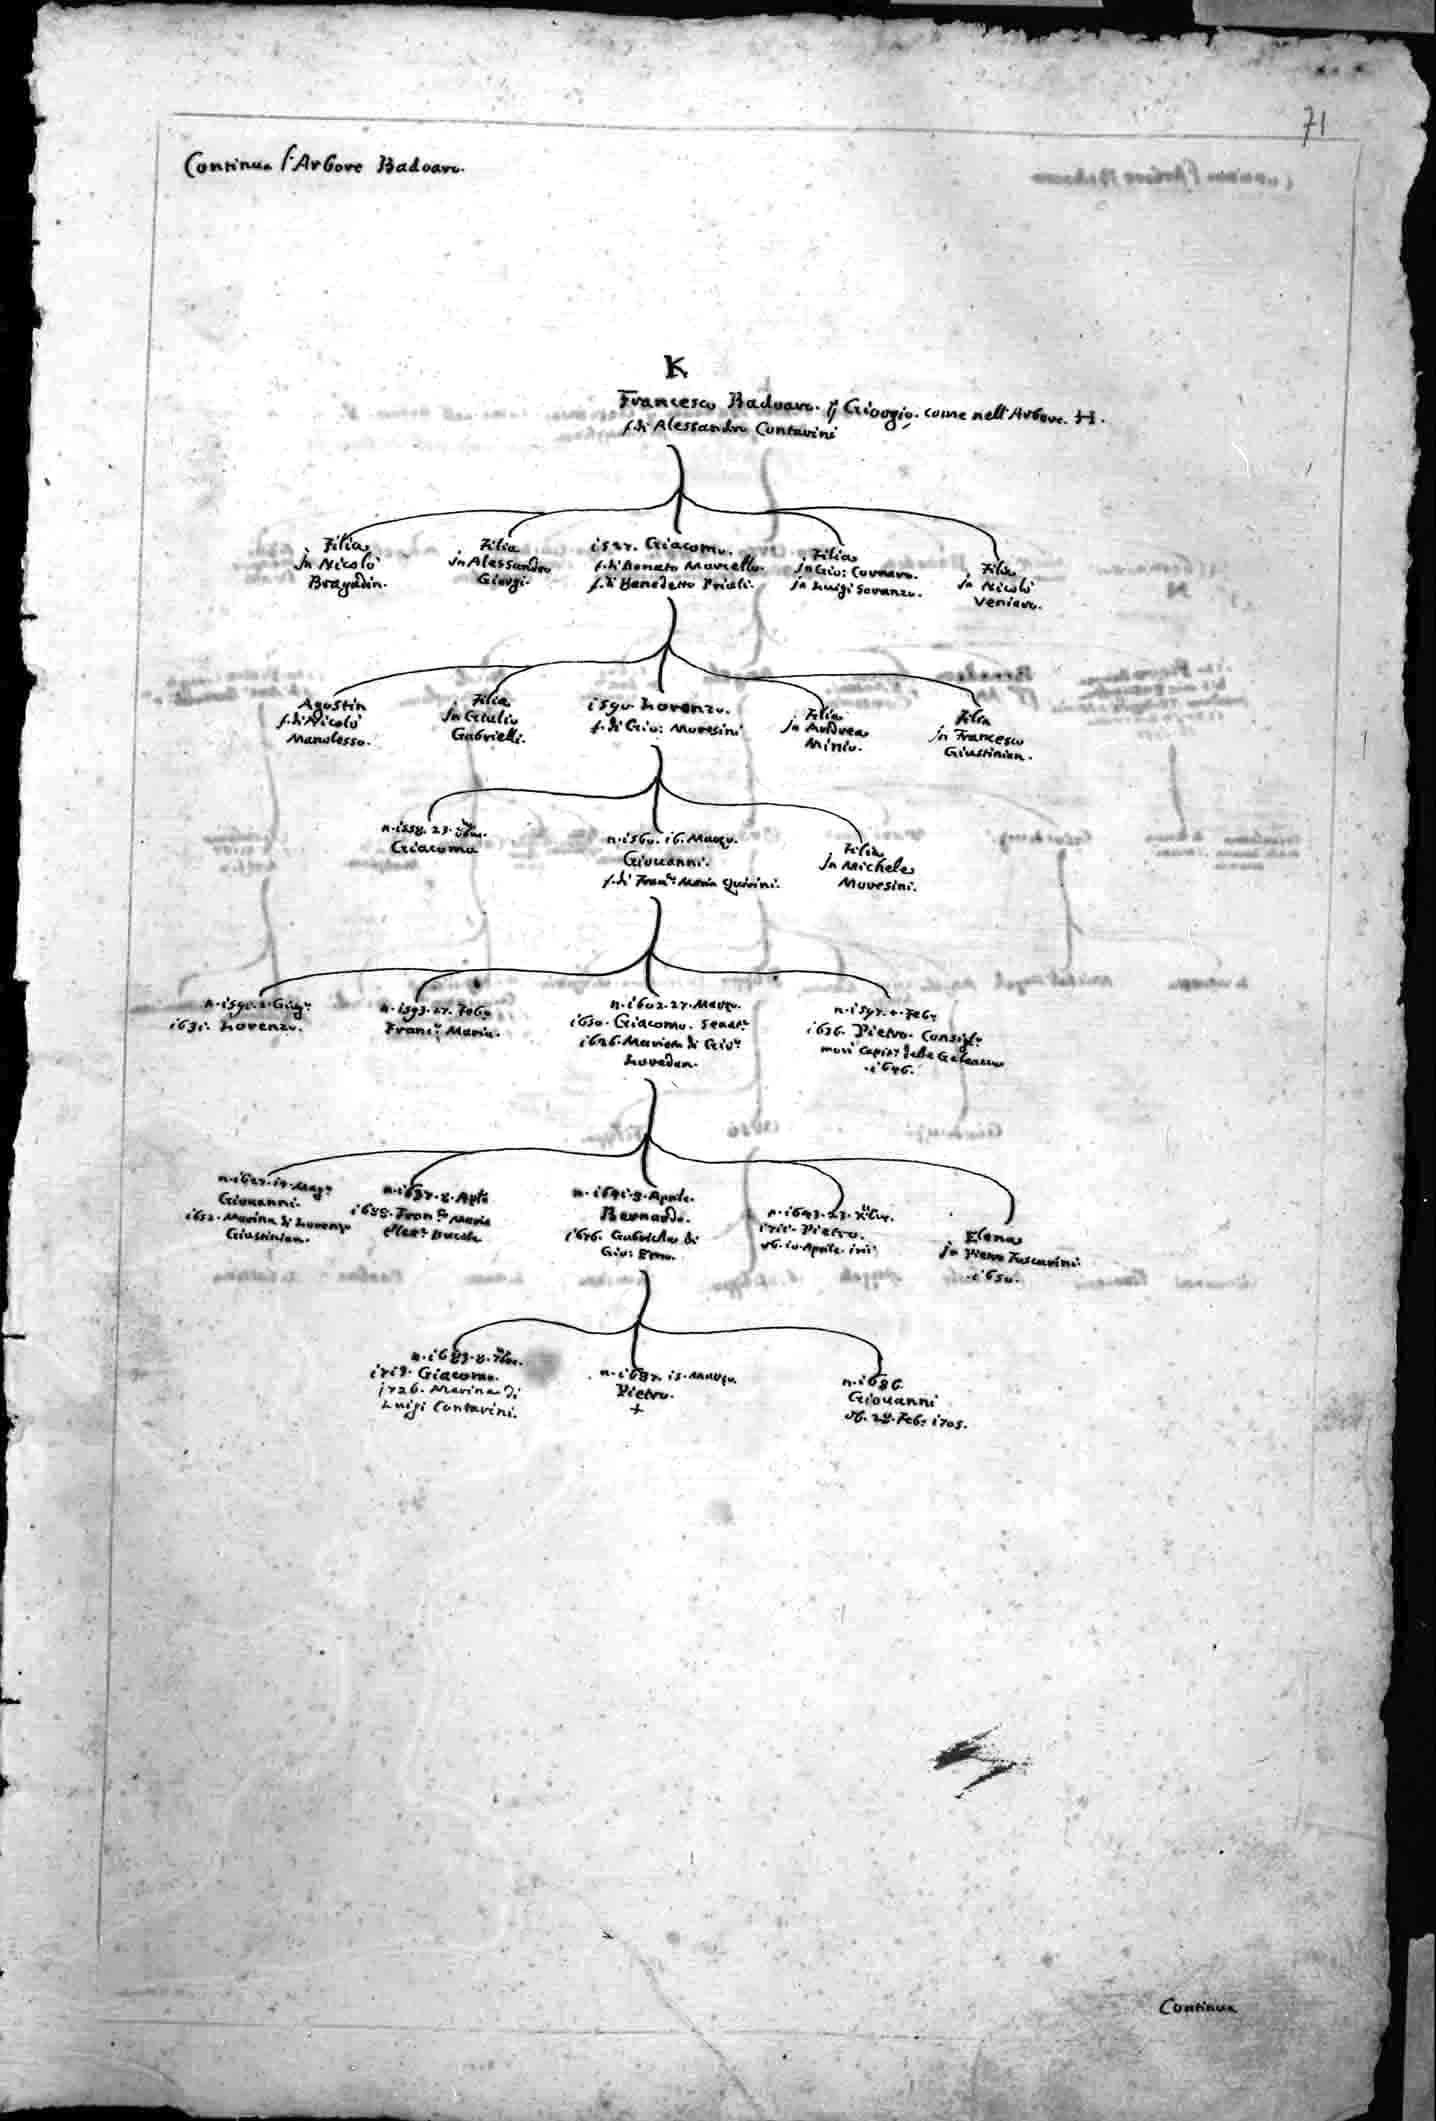 71
Continua l'Arbore Badoaro.
K
Francesco Badoaro. q Giorgio. come nell'Arbore. H.
f. di Alessandro Contarini
Filia
in Nicolò
Bragadin.
Filia
in Alessandro
Giorgi.
1527. Giacomo.
f. di Donato Marcello.
f. di Benedetto Priuli.
Filia
in Gio: Cornaro.
in Luigi Soranzo.
Filia
in Nicolò
Veniero.
Agostin
f. di Nicolò
Manolesso.
Filia
in Giulio
Gabrielli.
1590. Lorenzo.
f. di Gio: Moresini
Filia
in Andrea
Minio.
Filia
in Francesco
Giustinian.
n. 1558. 23.
Giacomo
n. 1560. 16. Marzo.
Giovanni.
f. di Franc. Maria Quirini.
Filia
in Michele
Moresini.
1631. Lorenzo.
n. 1593. 27. Feb.
Franc. Maria.
n. 1602. 27. Marzo.
1650. Giacomo. Senat.
1626. Marina di Gio.
Loredan.
n. 1597. Feb.
1636. Pietro. Consigl.
morì Capit. delle Galeazze
1646.
n. 1627. 14. Mag.
Giovanni.
1652. Marina di Lorenzo
Giustinian.
n. 1637. 8. Apl.
1658. Franc. Maria
n. 1641. 9. Aprile.
Bernardo.
1676. Gabriela di
Gio: Emo.
n. 1643. 23. Xbre.
1711. Pietro.
ob. 10. Aprile.
Elena
in Pietro Foscarini
1650.
n. 1683. 8.
1719. Giacomo.
1726. Marina di
Luigi Contarini.
n. 1687. 15. Marzo.
Pietro.
+
n. 1686.
Giovanni
ob. 28. Feb. 1705.
Continua